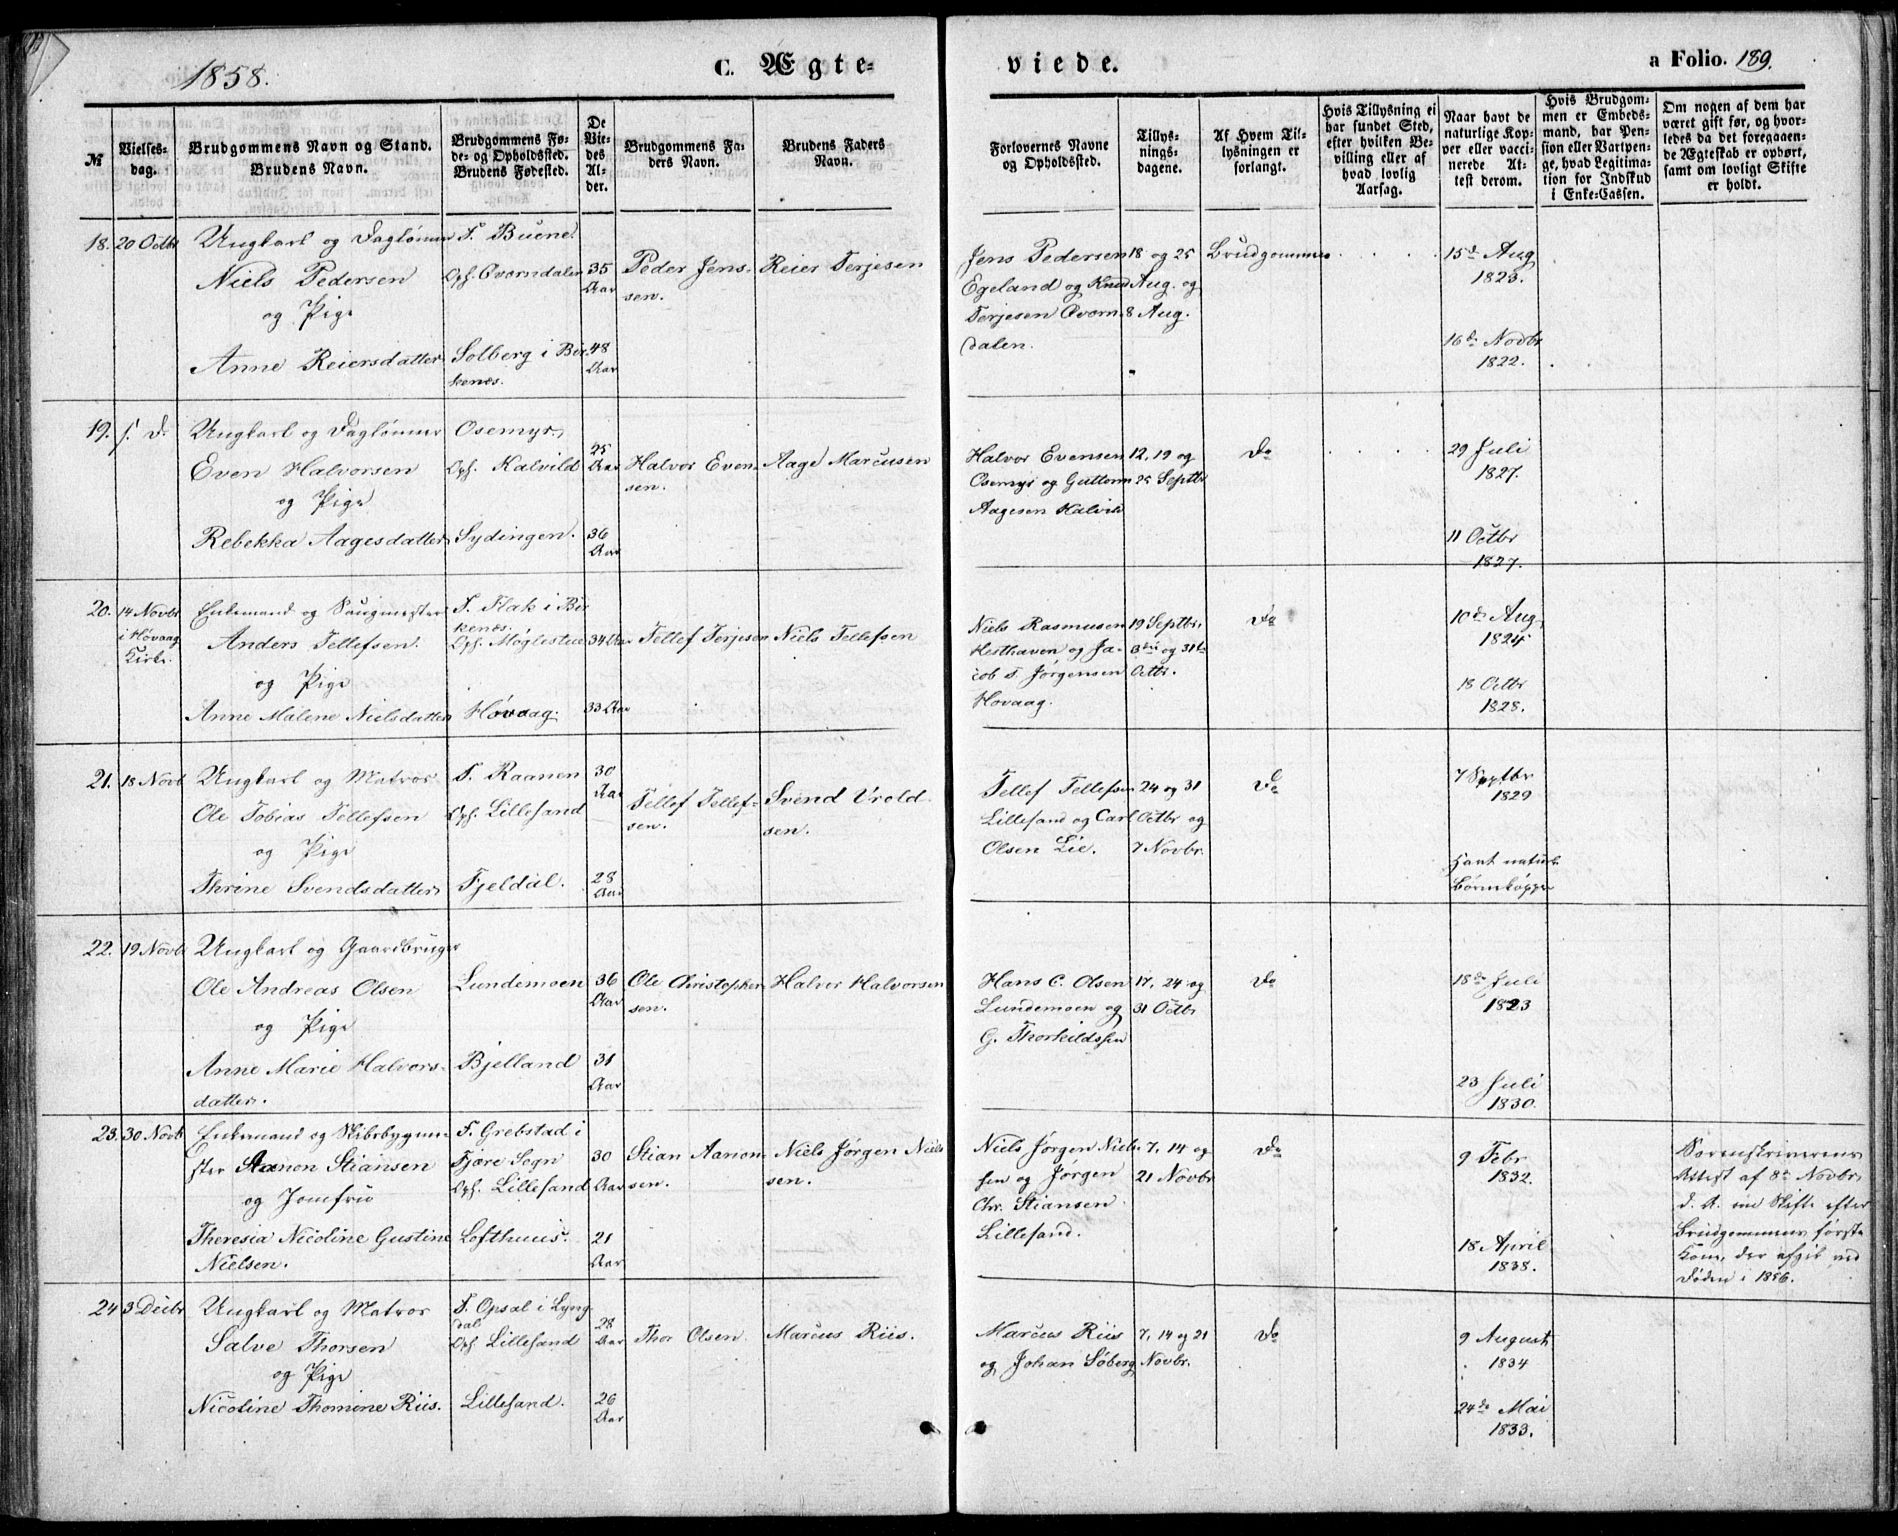 1858.
C. Ægte-
viede.
a Folio. 189.
№
Vielses-
dag.
Brudgommens Navn og Stand.
Brudens Navn.
Brudgommens Fø-
de- og Opholdssted.
Brudens Fødested.
De
Vie-
des
Al-
der.
Brudgommens Fa-
ders Navn.
Brudens Faders
Navn.
Forlovernes Navne
og Opholdssted.
Tillys-
nings-
dagene.
Af Hvem Til-
lysningen er
forlangt.
Hvis Tillysning ei
har fundet Sted,
efter hvilken Be-
villing eller af
hvad lovlig
Aarsag.
Naar havt de
naturlige Kop-
per eller vacci-
nerede At-
test derom.
Hvis Brudgom-
men er Embeds-
mand, har Pen-
sion eller Vartpen-
ge, hvad Legitima-
tion for Indskud
i Enke-Cassen.
Om nogen af dem har
været gift før, og hvor-
ledes da det foregaaen-
de Ægteskab er ophørt,
samt om lovligt Skifte
er holdt.
18. 20 Octbr
Ungkarl og Daglønner
Niels Pedersen
og Pige
Anne Reiersdatter
F. Buene.
Oph. Ovorndalen
Solberg i Bir
kenes.
35
Aar
48
Aar
Peder Jens-
sen.
Reier Terjesen
Jens Pedersen
Egeland og Knud
Terjesen Ovorn
dalen.
18 og 25
Aug. og
8 Aug.
Brudgommen
15de Aug
1823.
16de Novbr
1822.
19. s. D.
Ungkarl og Daglønner
Even Halvorsen
og Pige
Rebekka Aagesdatter
Osemyr.
Oph. Kalvild
Sydingen.
25
Aar
36
Aar
Halvor Even-
sen.
Aage Marcusen
Halvor Evensen
Osemyr og Guttorm
Aagesen Kalvild
12, 19 og
25 Septbr
Do
29 Juli
1827.
11 Octbr
1827.
20. 14 Novbr
i Høvaag
Kirke.
Enkemand og Saugmester
Anders Tellefsen
og Pige
Anne Malene Nielsdatter
F. Flak i Bir
kenes.
Oph. Møglestue
Høvaag.
34 Aar
33 Aar
Tellef Terjesen
Niels Tellefsen
Niels Rasmusen
Hesthaven og Ja-
cob T. Jørgensen
Hovaag.
19 Septbr,
3die og 31te
Octbr.
Do
10de Aug
1824
18 Octbr
1828.
21. 18 Novb
Ungkarl og Matros
Ole Tobias Tellefsen
og Pige
Thrine Svendsdatter
F. Raanen
Oph. Lillesand
Fjeldal.
30
Aar
28
Aar
Tellef Tellef-
sen.
Svend Vrold
sen.
Tellef Tellefsen
Lillesand og Carl
Olsen Lie.
24 og 31
Octbr og
7 Novbr.
Do
7 Septbr
1829
Havt naturl.
Børnekopper
22. 19 Novb
Ungkarl og Gaardbruger
Ole Andreas Olsen
og Pige
Anne Marie Halvors-
datter.
Lundemoen
Bjelland
36
Aar
31
Aar
Ole Christopher
sen.
Halvor Halvorsen
Hans C. Olsen
Lundemoen og
G. Thorkildssen
17, 24 og
31 Octbr
Do
18de Juli
1823
23 Juli
1830.
23. 30 Novb
Enkemand og Skibsbygme-
ster Aanon Stiansen
og Jomfru
Theresia Nicoline Gustine
Nielsen.
F. Grebstad i
Fjære Sogn
Oph. Lillesand
Lofthuus.
30
Aar
21
Aar
Stian Aanon-
sen.
Niels Jørgen Niels
sen.
Niels Jørgen Niels-
sen og Jørgen
Chr. Stiansen
Lillesand.
7, 14 og
21 Novbr
Do
9 Febr
1832.
18 April
1838.
Sorenskriverens
Attest af 8de Novbr
d. A. om Skifte efter
Brudgommens første
Kone, der afgik ved
Døden i 1856.
24 3 Decbr
Ungkarl og Matros
Salve Thorsen
og Pige
Nicoline Thomine Riis.
F. Opsal i Lyng
dal
Oph. Lillesand
Lillesand.
28
Aar
26
Aar
Thor Olsen.
Marcus Riis.
Marcus Riis
og Johan Søberg
7, 14 og 21
Novbr.
Do
9 August
1834
24de Mai
1833.